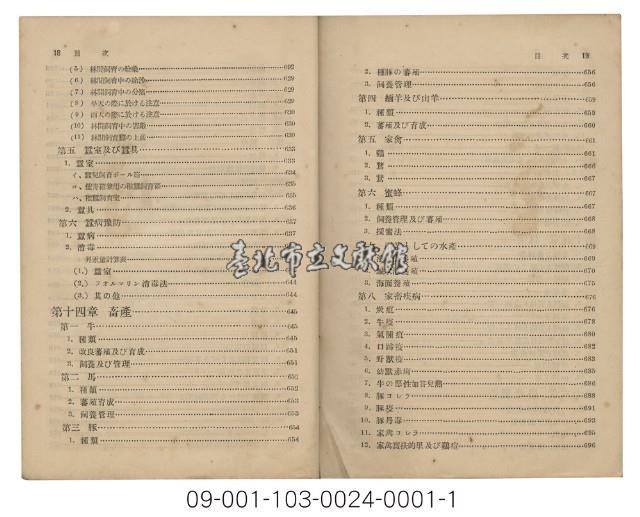 18 目次
(5) 林間飼育の給桑 692
(6) 林間飼育中の除沙
(7) 林間飼育中の分箔 629
(8) 旱天の際に於ける注意 629
(9) 雨天の際に於ける注意 629
(10) 林間飼育中の害敵 630
(11) 林間飼育蠶の上蔟 630
第五 蠶室及び蠶具 633
1. 蠶室 633
イ、蠶兒飼育ボール箱 634
ハ、稚蠶飼育室
2. 蠶具 637
第六 蠶病豫防 637
1. 蠶病 637
2. 消毒
(1.) 蠶室 644
(2.) フオルマリン消毒法
(3.) 其の他 644
第十四章 畜產 645
第一 牛 645
1. 種類 645
2. 改良蕃殖及び育成 651
3. 飼養及び管理 651
第二 馬 652
1. 種類 652
2. 蕃殖育成 653
3. 飼養管理 653
第三 豚 654
1. 種類 654
目次 19
2. 種豚の蕃殖 656
3. 飼養管理 656
第四 緬羊及び山羊 659
1. 種類 659
2. 蕃殖及び育成 660
第五 家禽 661
1. 鷄 661
2. 鶩 666
3. 鵞 667
第六 蜜蜂 667
1. 種類 668
2. 飼養管理及び蕃殖 668
3. 採蜜法 668
しての水產 669
養殖
養殖
3. 海面養殖
第八 家畜疾病 676
1. 炭疽 676
2. 牛疫 678
3. 氣腫疽 680
4. 口蹄疫 682
5. 野獸疫 683
6. 幼獸赤痢 685
7. 牛の惡性加答兒熱 686
8. 豚コレラ 688
9. 豚疫 691
10. 豚丹毒 693
11. 家禽コレラ 694
12. 家禽實扶的里及び鷄痘 696
臺北市立文獻館
09-001-103-0024-0001-1